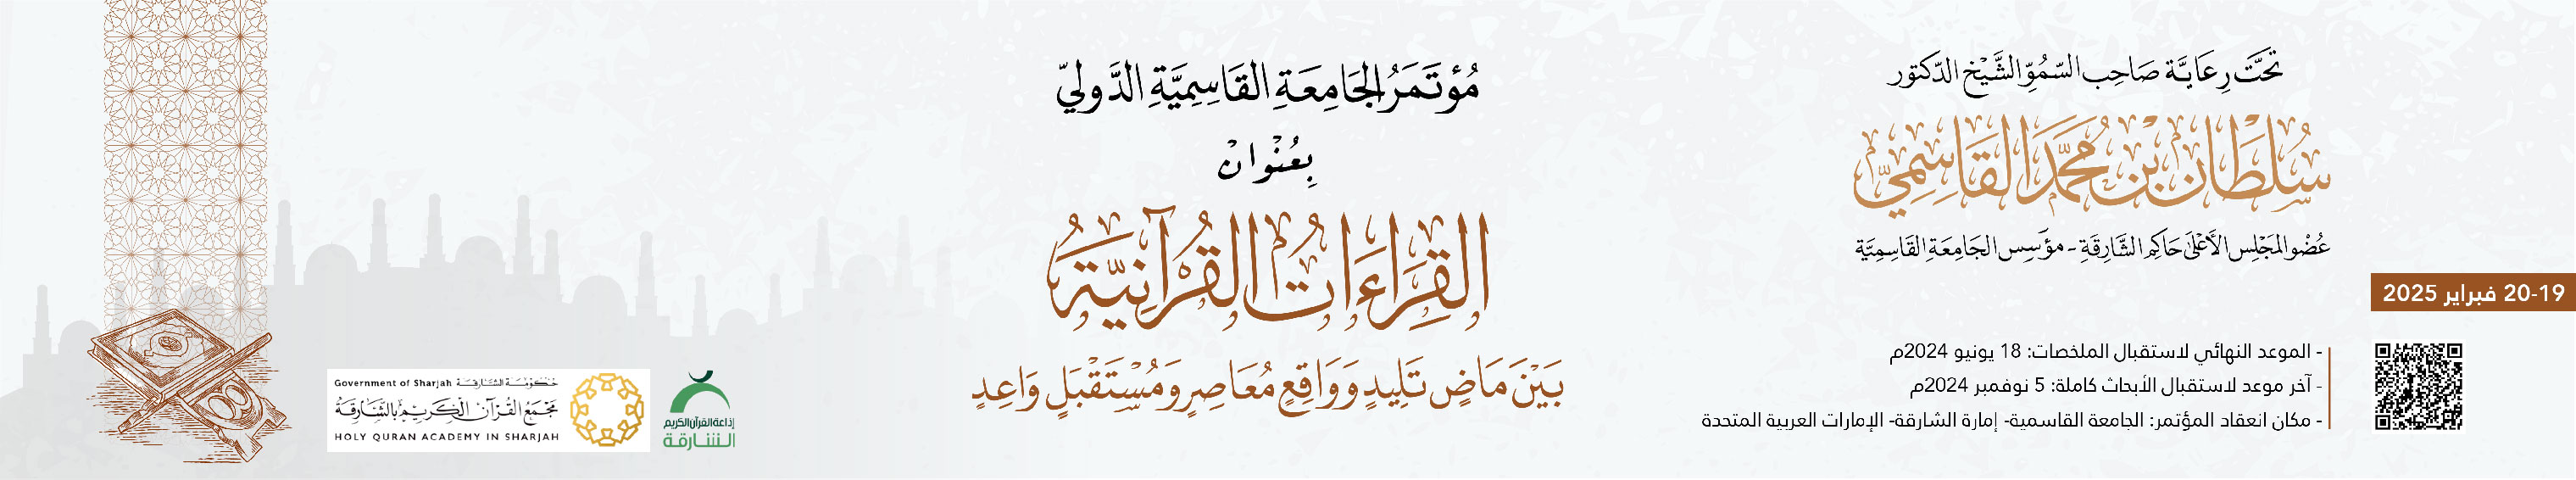 تَحْتَ رِعَايَةِ صَاحِبِ السُّمُوِّ الشَّيْخِ الدّكتور
سُلْطَان بْن مُحَمَّد القَاسِمِيّ
عُضْو المَجْلِس الأَعْلَى حَاكِم الشَّارِقَةِ - مؤَسِس الجَامِعَةِ القَاسِمِيَّة
19-20 فبراير 2025
- الموعد النهائي لاستقبال الملخصات: 18 يونيو 2024م
- آخر موعد لاستقبال الأبحاث كاملة: 5 نوفمبر 2024م
- مكان انعقاد المؤتمر: الجامعة القاسمية- إمارة الشارقة- الإمارات العربية المتحدة
مُؤتَمَرُ الجَامِعَةِ القَاسِمِيَّةِ الدَّوليّ
بِعُنْوانْ
القِرَاءَاتُ القُرْآنِيَّةُ
بَيْنَ مَاضٍ تَلِيدٍ وَوَاقِعٍ مُعَاصِرٍ وَمُسْتَقْبَلٍ وَاعِدٍ
إذاعة القرآن الكريم
الشارقة
Government of Sharjah حكومة الشارقة
مَجْمَع القُرآن الكَريم بالشَّارِقَة
HOLY QURAN ACADEMY IN SHARJAH